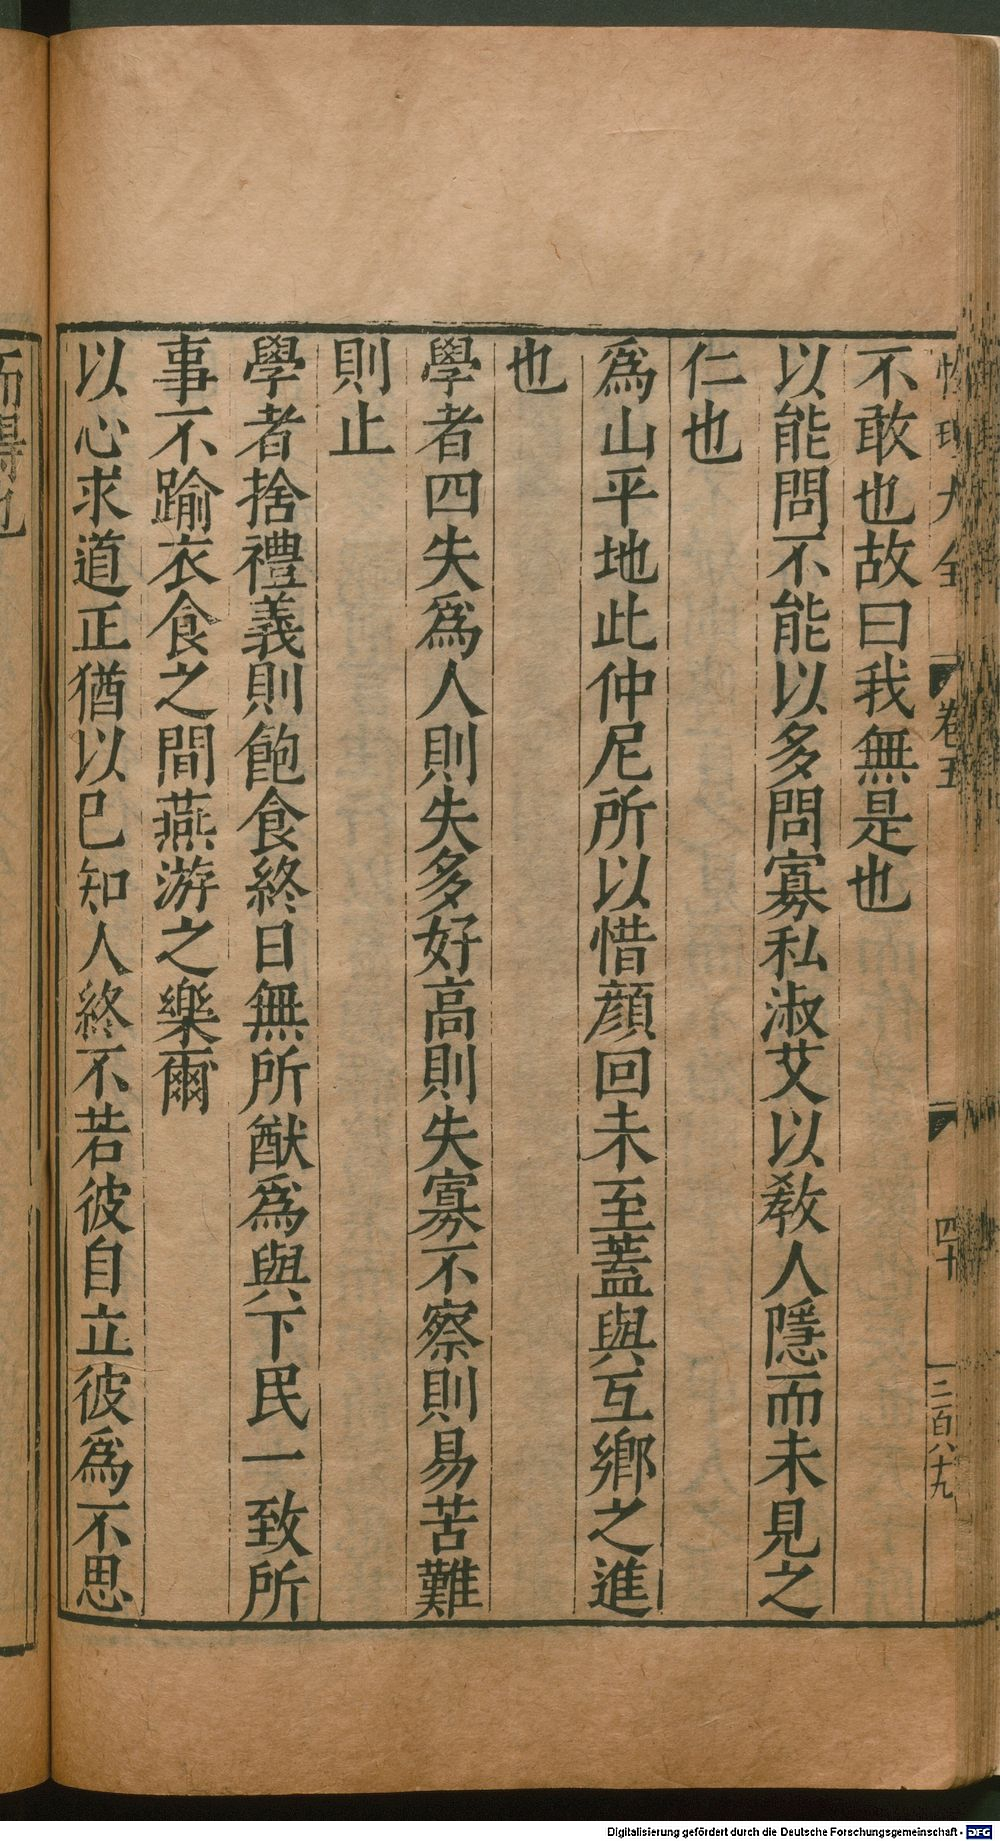 性理大全 卷五 四十 三百八十九
不敢也故曰我無是也
以能問不能以多問寡私淑艾以教人隱而未見之
仁也
爲山平地此仲尼所以惜顔回未至蓋與互鄉之進
也
學者四失爲人則失多好高則失寡不察則易苦難
則止
學者捨禮義則飽食終日無所猷爲與下民一致所
事不踰衣食之間燕游之樂爾
以心求道正猶以已知人終不若彼自立彼爲不思
而得也
Digitalisierung gefördert durch die Deutsche Forschungsgemeinschaft - DFG